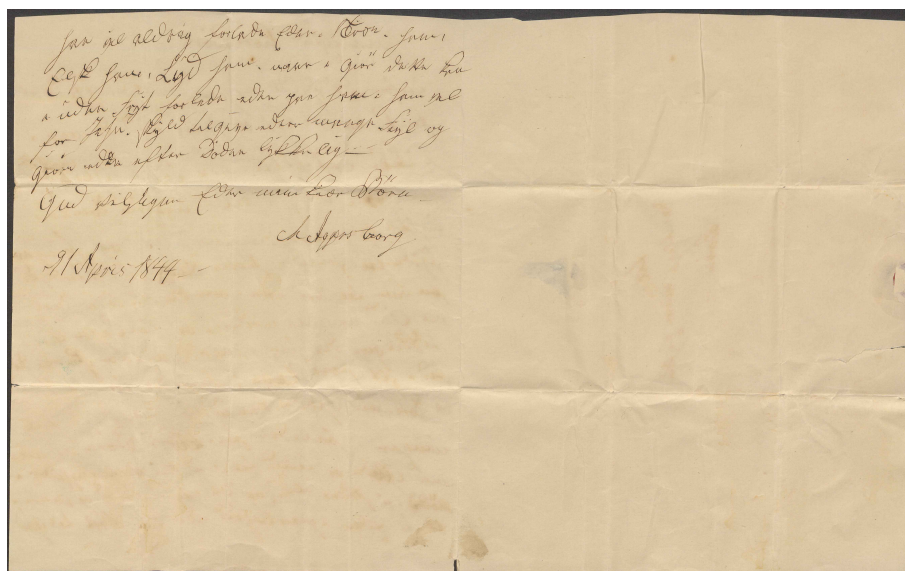 han vel aldrig forlade Eder. Troe. ham,
Elsk ham, Lyd ham. naar i Giør dette kan
i uden frygt forlade eder paa ham: han vel
for Jesu. skyld tilgive eder mange feyl og
Giøre eder efter Døden lykkelig
Gud velsigne Eder mine kiære Børn
M Appesborg
21 April 1844